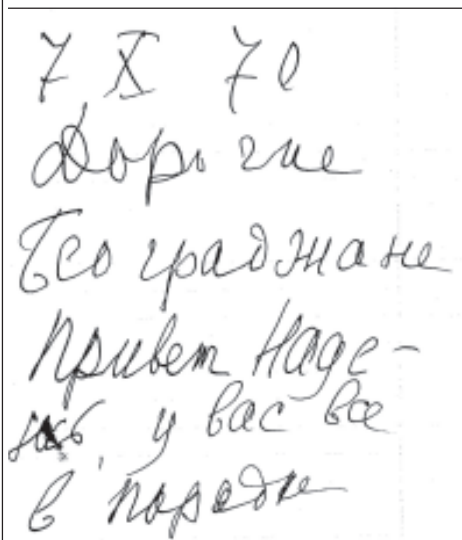 7 X 70
Дорогие
Београджане
Привет Наде-
юсь, у вас все
в порядке